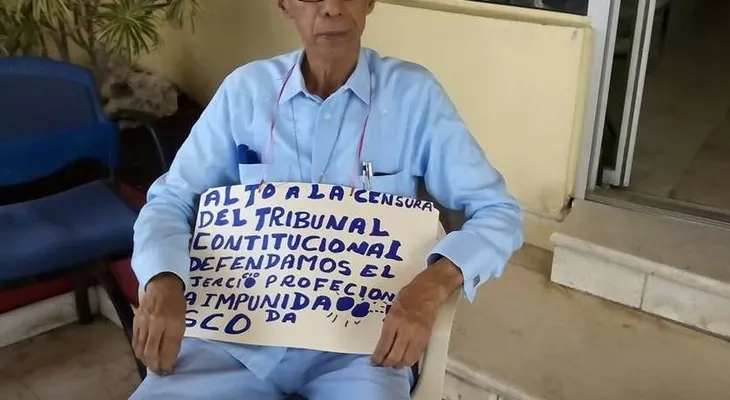 ALTO A LA CENSURA
DEL TRIBUNAL
CONTITUCIONAL
DEFENDAMOS EL
JERCICIO PROFECION
A IMPUNIDAD
SCO DA